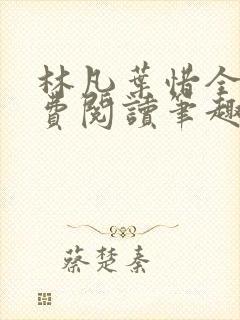 林凡葉惜全
費閱讀筆趣
蔡楚秦